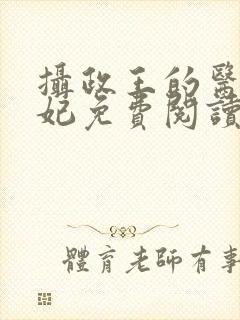 攝政王的醫
妃免費閱讀
體育老師有事